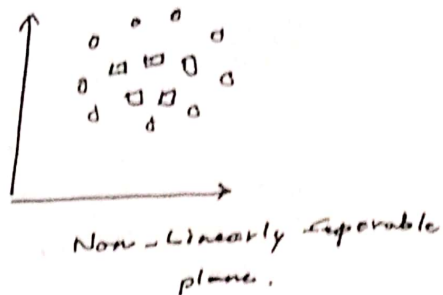 Non-Linearly Seperable
plane.